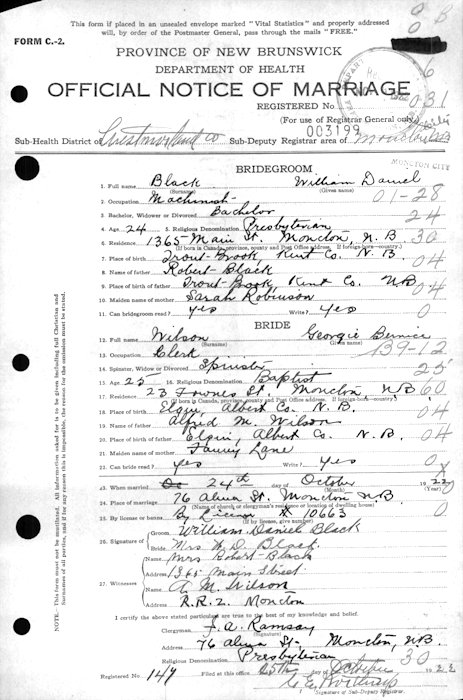 This form if placed in an unsealed envelope marked "Vital Statistics" and properly addressed
will, by order of the Postmaster General, pass through the mails "FREE."
FORM C.-2.
PROVINCE OF NEW BRUNSWICK
DEPARTMENT OF HEALTH
OFFICIAL NOTICE OF MARRIAGE
REGISTERED No. 031
(For use of Registrar General only)
003199
Sub-Health District of Westmorland Co Sub-Deputy Registrar area of
MONCTON CITY
BRIDEGROOM
1. Full name Black William Daniel
(Surname) (Given names)
2. Occupation Machinist 01-28
3. Bachelor, Widower or Divorced Bachelor 24
4. Age 24 5. Religious Denomination Presbyterian
6. Residence 1365 Main St. Moncton, N.B. 30
(If born in Canada, province, county and Post Office address. If foreign-born—country.)
7. Place of birth Trout Brook, Kent Co. N.B. 04
8. Name of father Robert Black
9. Place of birth of father Trout Brook, Kent Co. N.B. 04
10. Maiden name of mother Sarah Robinson
11. Can bridegroom read? yes Write? yes 0
BRIDE
12. Full name Wilson Georgie Bernice
(Surname) (Given names)
13. Occupation Clerk 139-12
14. Spinster, Widow or Divorced Spinster 25
15. Age 25 16. Religious Denomination Baptist
17. Residence 23 Fownes St. Moncton NB 60
(If born in Canada, province, county and Post Office address. If foreign-born—country.)
18. Place of birth Elgin, Albert Co. N.B. 04
19. Name of father Alfred M. Wilson
20. Place of birth of father Elgin, Albert Co. N.B. 04
21. Maiden name of mother Fanny Lane
22. Can bride read? yes Write? yes 0
23. When married 24th day of October 1922
(Month) (Year)
24. Place of marriage 76 Alma St. Moncton NB
(Name of church or clergyman's residence or location of dwelling house)
25. By license or banns By License # 10663 0
(If by license, give number)
26. Signature of Groom, William Daniel Black
Bride, Mrs W. D. Black
27. Witnesses Name Mrs Robert Black
Address 1365 Main Street
Name A. M. Wilson
Address R.R.2. Moncton
I certify the above stated particulars are true to the best of my knowledge and belief.
Clergyman, F. A. Ramsay
(Signature)
Address 76 Alma St. Moncton, NB.
Religious Denomination Presbyterian 30
Registered No. 147 Filed at this office 25th day of October 1922
(Signature of Sub-Deputy Registrar.)
NOTE. All information asked for is to be given including full Christian and Surnames of all parties, and if any reason this is impossible, the reason for the omission must be stated.
This form must not be made with unfading ink.